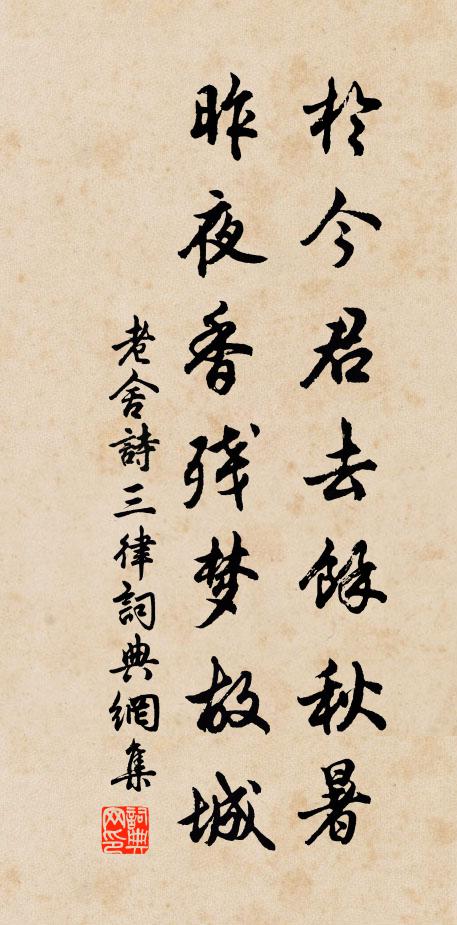 於今君去餘秋暑
昨夜香残梦故城
老舍詩三律詞典網集
詞典网印